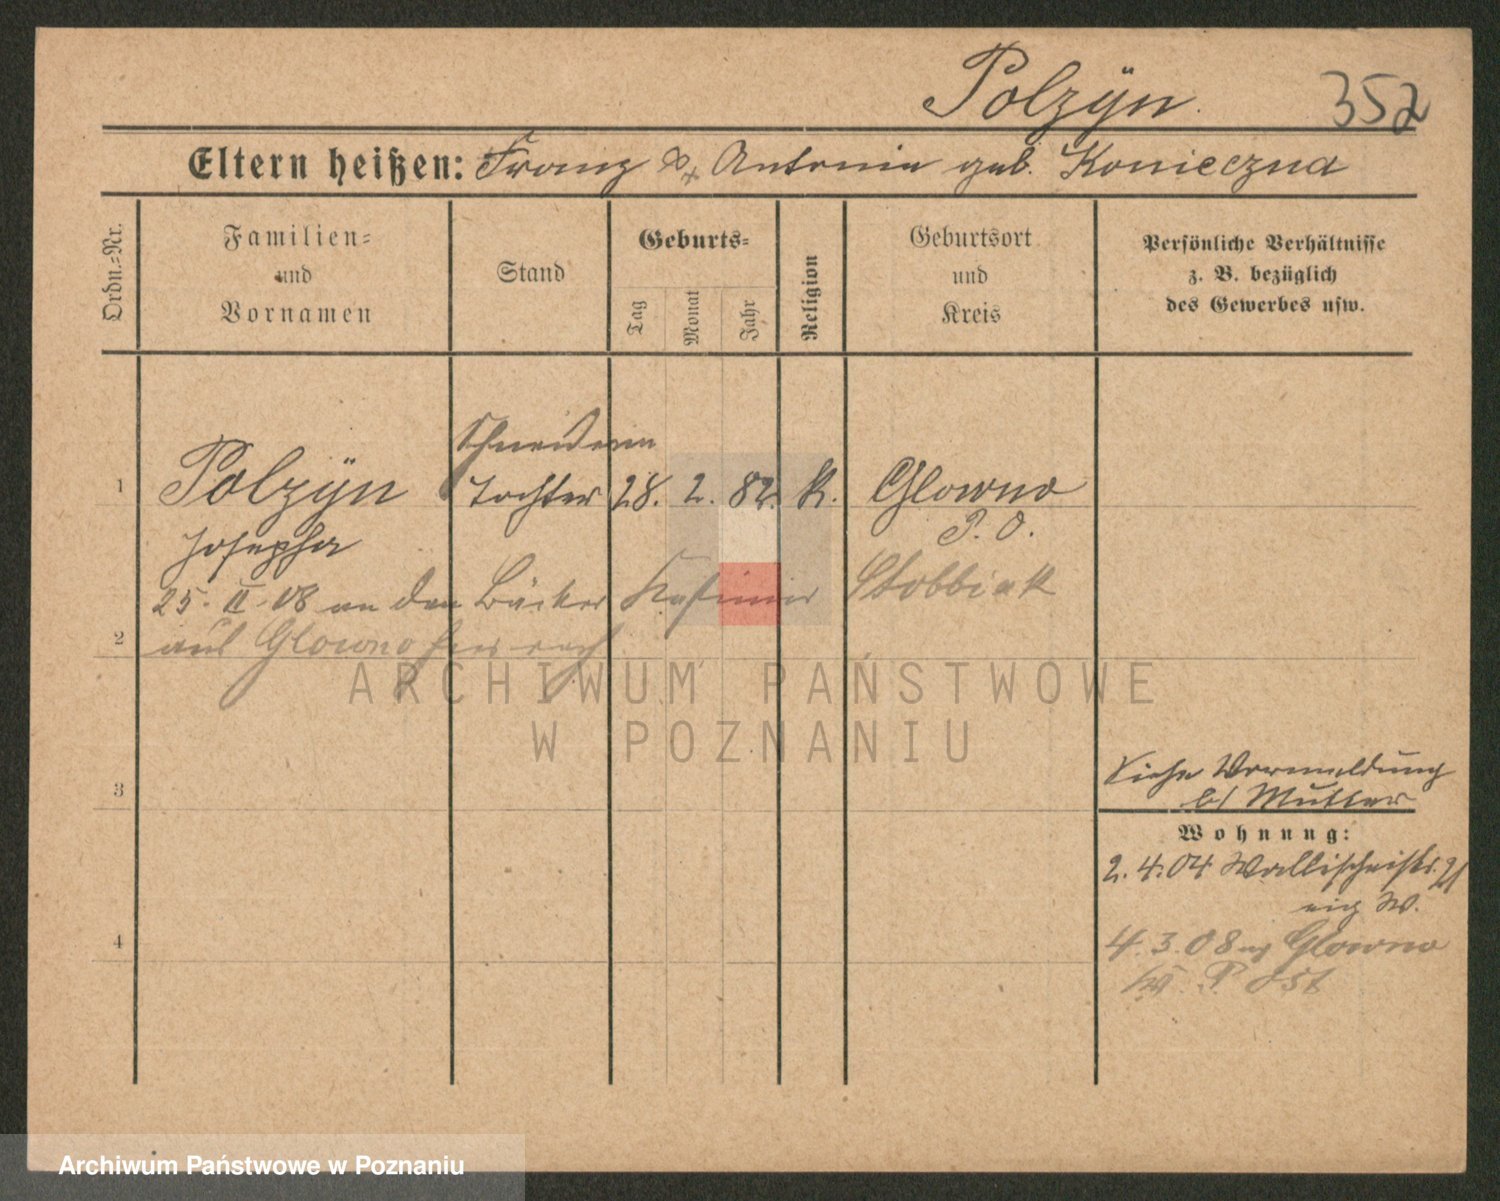 Polzÿn. 352
Eltern heißen: Franz & Antonia geb. Konieczna
Ordn.-Nr.
Familien-
und
Vornamen
Stand
Geburts-
Tag
Monat
Jahr
Religion
Geburtsort
und
Kreis
Persönliche Verhältnisse
z. B. bezüglich
des Gewerbes usw.
Schneiderin
1 Polzÿn Tochter 28. 2. 82. K. Glowno
Josepha P. O.
25. II 08 an den Bäcker Kasimir Stobbiak
2 aus Glowno
3
Siehe Vormeldung
b/ Mutter
Wohnung:
2. 4. 04 Wallischeistr.
4
4. 3. 08 Glowno
ARCHIWUM PAŃSTWOWE
W POZNANIU
Archiwum Państwowe w Poznaniu